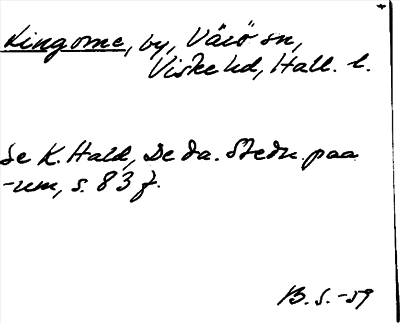 Lingome, by, Värö sn,
Viske hd, Hall. l.
Se K. Hald, De da. Stedn. paa
-um, s. 83 f.
B. S. -59